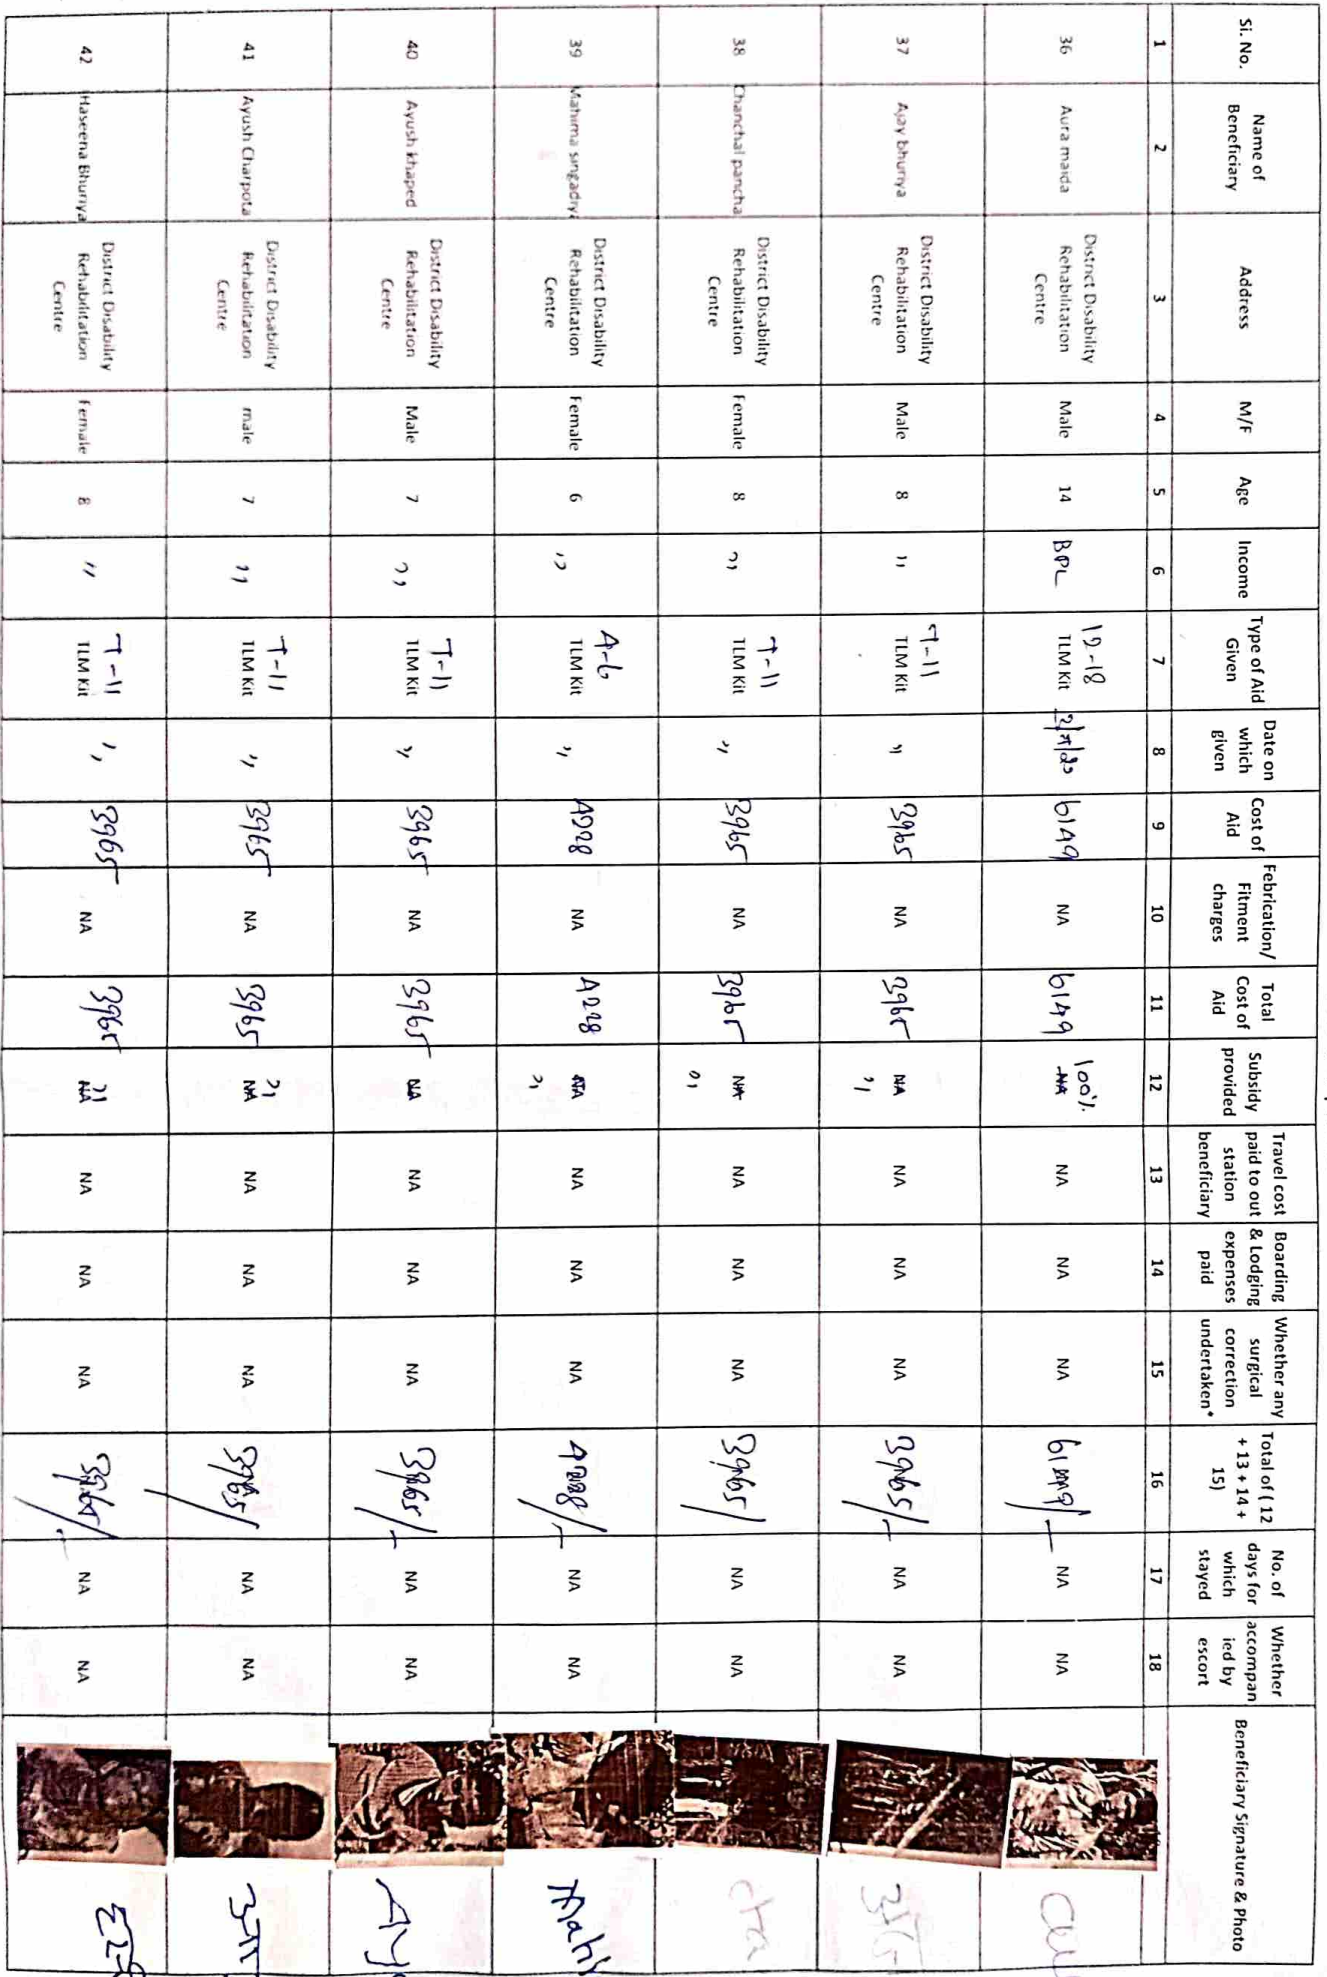 Si. No. | Name of Beneficiary | Address | M/F | Age | Income | Type of Aid Given | Date on which given | Cost of Aid | Febrication/ Fitment charges | Total Cost of Aid | Subsidy provided | Travel cost paid to out station beneficiary | Boarding & Lodging expenses paid | Whether any surgical correction undertaken* | Total of ( 12 + 13 + 14 + 15) | No. of days for which stayed | Whether accompan ied by escort | Beneficiary Signature & Photo
1 | 2 | 3 | 4 | 5 | 6 | 7 | 8 | 9 | 10 | 11 | 12 | 13 | 14 | 15 | 16 | 17 | 18
36 | Aura maida | District Disability Rehabilitation Centre | Male | 14 | BPL | 12-18 TLM Kit | | 6149 | NA | 6149 | 100% NA | NA | NA | NA | 6149/- | NA | NA
37 | Ajay bhuriya | District Disability Rehabilitation Centre | Male | 8 | " | T-11 TLM Kit | " | 3965 | NA | 3965 | NA " | NA | NA | NA | 3965/- | NA | NA
38 | Chanchal pancha | District Disability Rehabilitation Centre | Female | 8 | " | T-11 TLM Kit | " | 3965 | NA | 3965 | NA " | NA | NA | NA | 3965/ | NA | NA
39 | Mahima singadiya | District Disability Rehabilitation Centre | Female | 6 | " | A-6 TLM Kit | " | 4228 | NA | 4228 | NA " | NA | NA | NA | 4228/- | NA | NA | Mahi
40 | Ayush khaped | District Disability Rehabilitation Centre | Male | 7 | " | T-11 TLM Kit | " | 3965 | NA | 3965 | NA | NA | NA | NA | 3965/- | NA | NA | Ay
41 | Ayush Charpota | District Disability Rehabilitation Centre | male | 7 | " | T-11 TLM Kit | " | 3965 | NA | 3965 | " NA | NA | NA | NA | 3965/ | NA | NA
42 | Haseena Bhuriya | District Disability Rehabilitation Centre | Female | 8 | " | T-11 TLM Kit | " | 3965 | NA | 3965 | " NA | NA | NA | NA | 3965/- | NA | NA